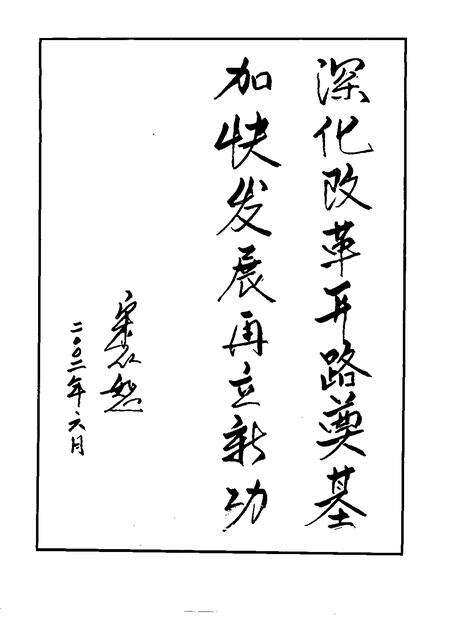 深化改革开路奠基
加快发展再立新功
二〇〇二年六月